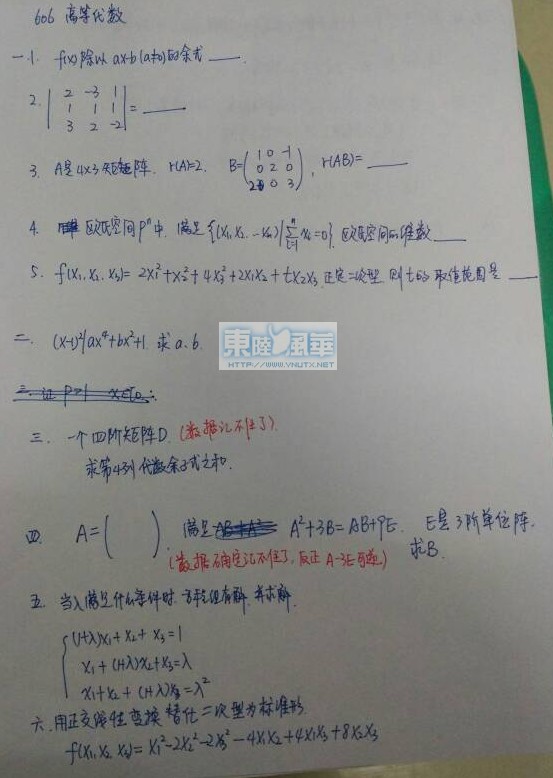 606 高等代数
一.1. f(x)除以 ax-b(a≠0)的余式 ___.
2. | 2 -3 1 |
| 1 1 1 | = ___
| 3 2 -2 |
3. A是4×3矩阵. r(A)=2. B=( 1 0 -1 ), r(AB)= ___
0 2 0
2 0 3
4. 欧氏空间Pⁿ中. 满足{(x₁,x₂...xₙ)|∑ⁿᵢ₌₁ xᵢ=0}. 欧氏空间的维数 ___
5. f(x₁,x₂,x₃)= 2x₁²+x₂²+4x₃²+2x₁x₂+tx₂x₃ 正定二次型 则t的取值范围是 ___
二. (x-1)²|ax⁴+bx²+1. 求a、b.
東陸風華
HTTP://WWW.YNUTX.NET
三. 证 P>1
三. 一个四阶矩阵D. (数据记不住了)
求第4列代数余子式之和.
四. A=( ). 满足 A²+3B=AB+9E. E是3阶单位阵.
(数据确定记不住了, 反正 A-3E可逆) 求B.
五. 当λ满足什么条件时. 方程组有解. 并求解.
(1+λ)x₁+x₂+x₃=1
x₁+(1+λ)x₂+x₃=λ
x₁+x₂+(1+λ)x₃=λ²
六. 用正交线性变换替化二次型为标准形.
f(x₁,x₂,x₃)= x₁²-2x₂²-2x₃²-4x₁x₂+4x₁x₃+8x₂x₃